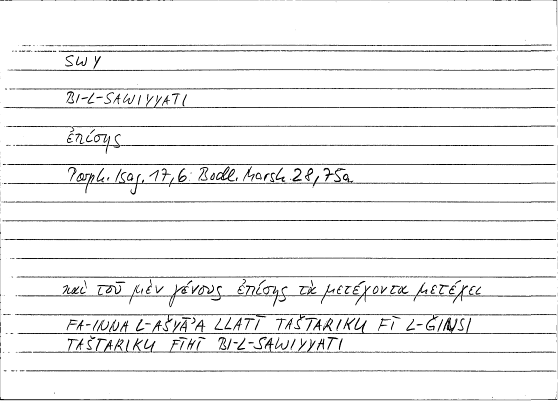 SWY
BI-L-SAWIYYATI
ἐπίσης
Porph. Isag. 17,6: Bodl. Marsh. 28,75a
καὶ τοῦ μὲν γένους ἐπίσης τὰ μετέχοντα μετέχει
FA-INNA L-AŠYĀʾA LLATĪ TAŠTARIKU FĪ L-ĞINSI
TAŠTARIKU FĪHĪ BI-L-SAWIYYATI